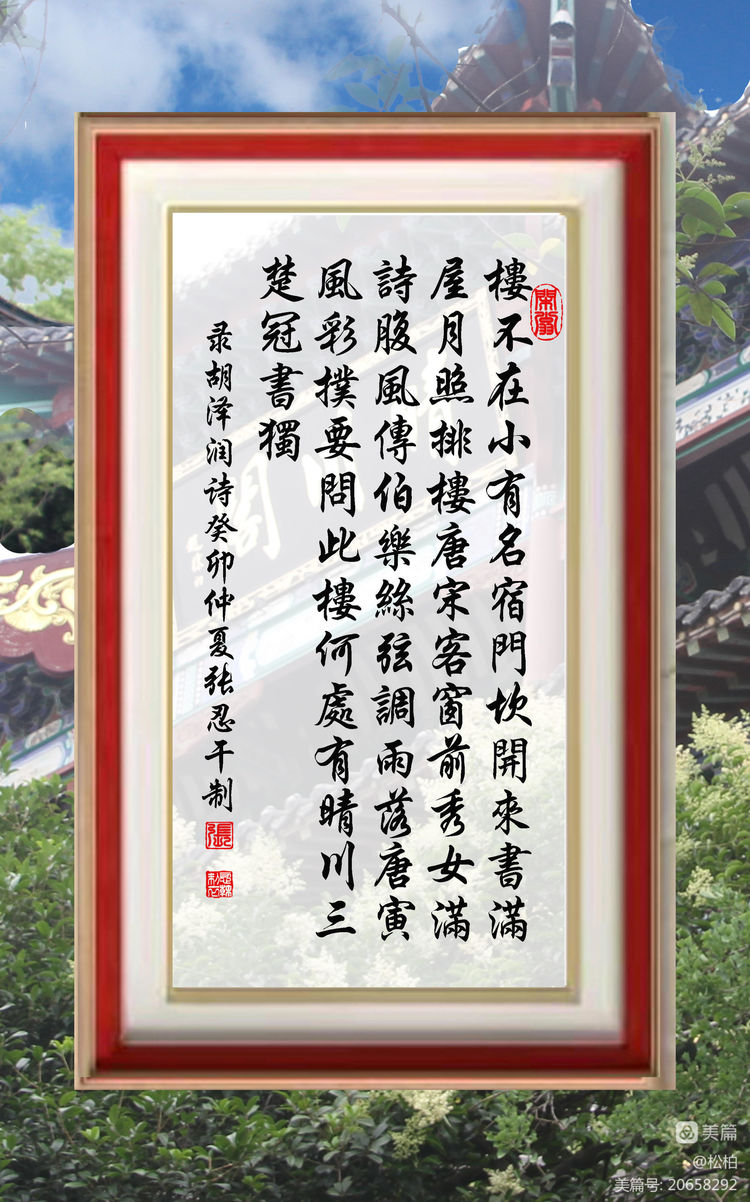 樓不在小有名宿門坎開來書滿
屋月照排樓唐宋客窗前秀女滿
詩腹風傳伯樂絲弦調雨落唐寅
風彩撲要問此樓何處有晴川三
楚冠書獨
录胡泽润诗癸卯仲夏张忍干制
張
美篇
@松柏
美篇号: 20658292